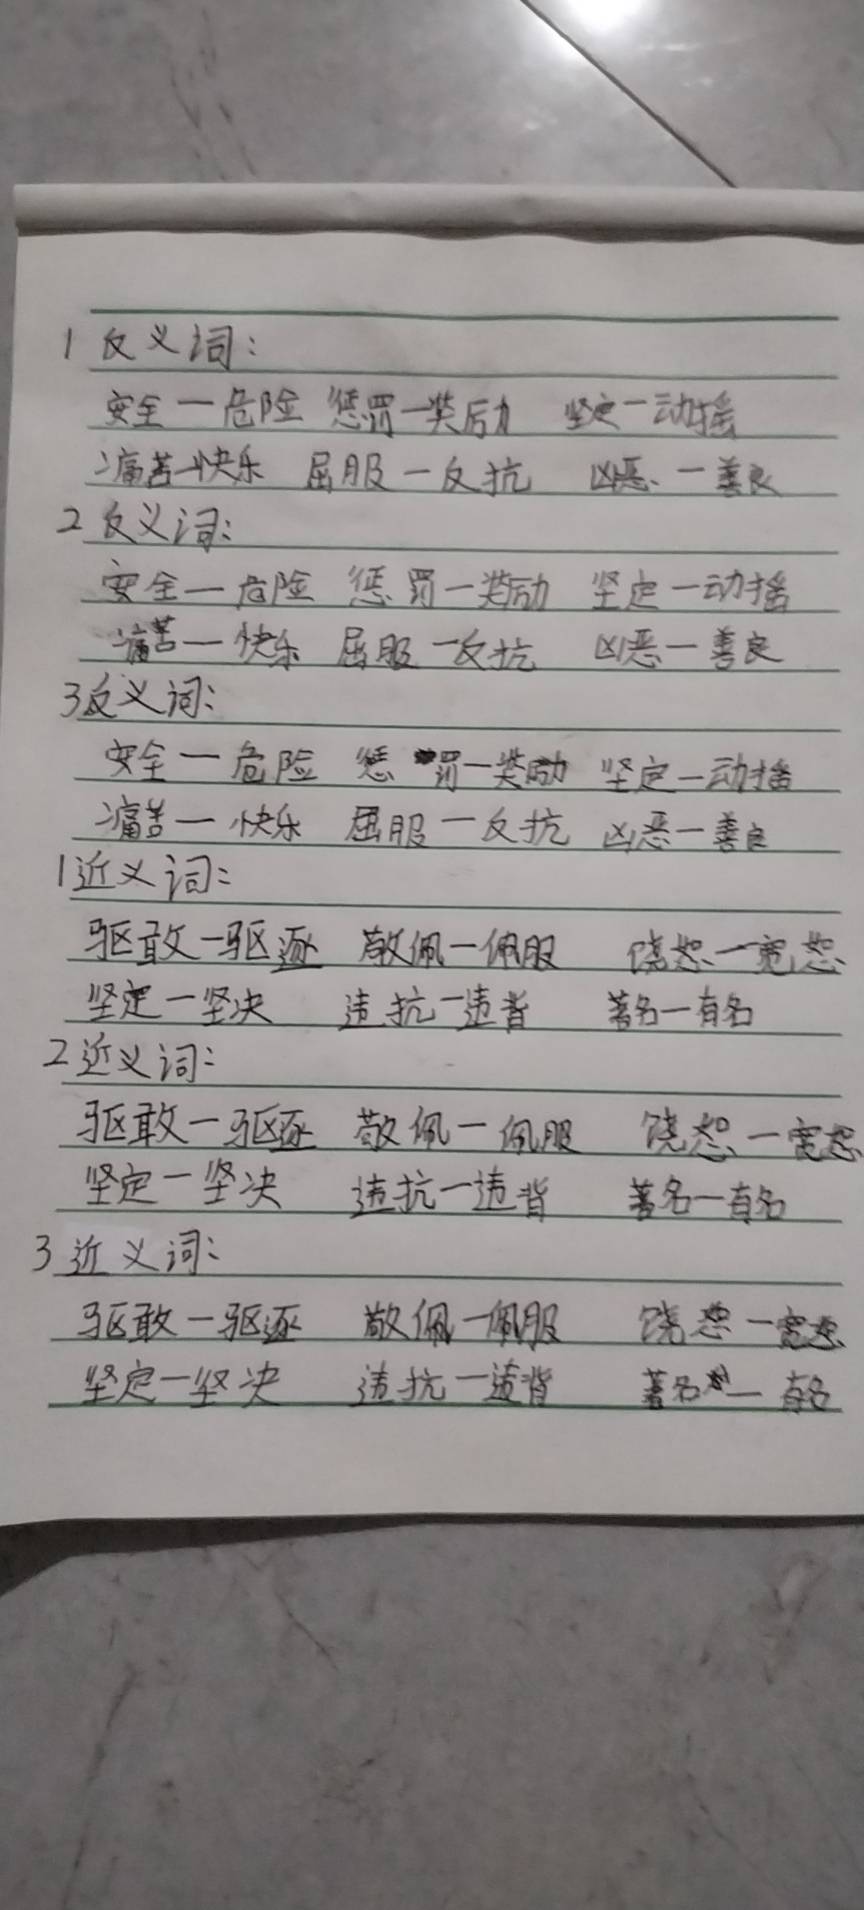 1 反义词:
安全—危险 惩罚—奖励 坚定—动摇
痛苦—快乐 屈服—反抗 凶恶—善良
2 反义词:
安全—危险 惩罚—奖励 坚定—动摇
痛苦—快乐 屈服—反抗 凶恶—善良
3 反义词:
安全—危险 惩罚—奖励 坚定—动摇
痛苦—快乐 屈服—反抗 凶恶—善良
1 近义词:
驱敢—驱逐 敬佩—佩服 饶恕—宽恕
坚定—坚决 违抗—违背 著名—有名
2 近义词:
驱敢—驱逐 敬佩—佩服 饶恕—宽恕
坚定—坚决 违抗—违背 著名—有名
3 近义词:
驱敢—驱逐 敬佩—佩服 饶恕—宽恕
坚定—坚决 违抗—违背 著名—有名